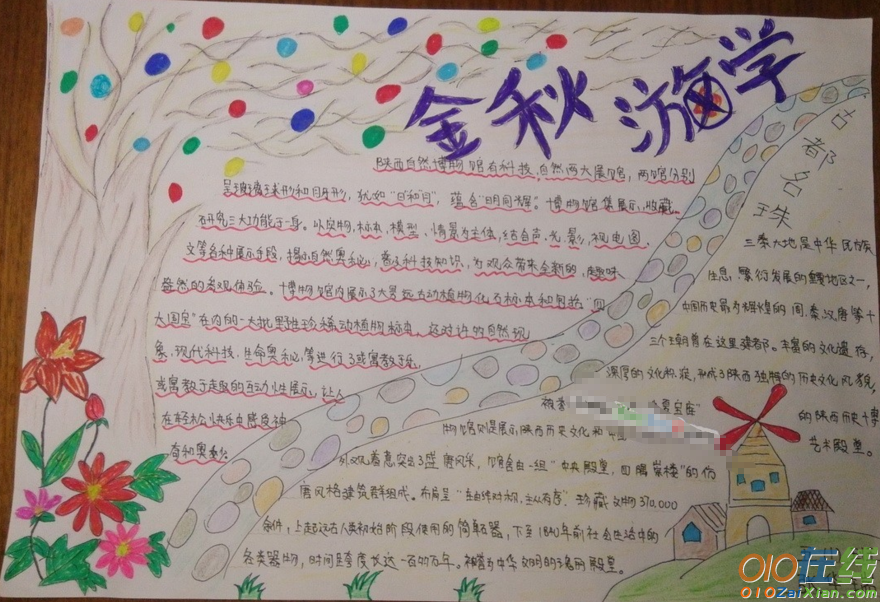 金秋游学
陕西自然博物馆有科技、自然两大展馆，两馆分别
呈球形和月形，犹如“日和月”，蕴含“明间耀”。博物馆集展示、收藏、
研究三大功能于一身。以实物、标本、模型、情景为主体，结合声、光、影、视、电、图、
文等各种展示手段，揭示自然奥秘，普及科技知识，为观众带来全新的、趣味
盎然的参观体验。博物馆内展示了大量远古动植物化石标本和包括“四
大国宝”在内的一大批野生珍稀动植物标本，这对许的自然现
象、现代科技、生命奥秘等进行了或寓教于乐
或寓教于趣的互动性展示，让人
在轻松快乐中
奇和奥秘。
古都名珠
三秦大地是中华民族
生息、繁衍发展的重要地区之一，
中国历史最为辉煌的周、秦、汉、唐等十
三个王朝曾在这里建都。丰富的文化遗存，
深厚的文化积淀，形成了陕西独特的历史文化风貌，
被誉 宝库
的陕西历史博
物馆则是展示陕西历史文化和
艺术殿堂。
外观着意突出了盛唐风采，馆舍由一组“中央殿堂，四隅崇楼”的仿
唐风格建筑群组成。布局呈“主由绊对视，主从有序”。珍藏文物370,000
余件，上起远古人类初始阶段使用的简单石器，下至1840年前社会生活中的
各类器物，时间跨度长达一百万年。被誉为中华文明的 殿堂。
010在线
010ZaiXian.com